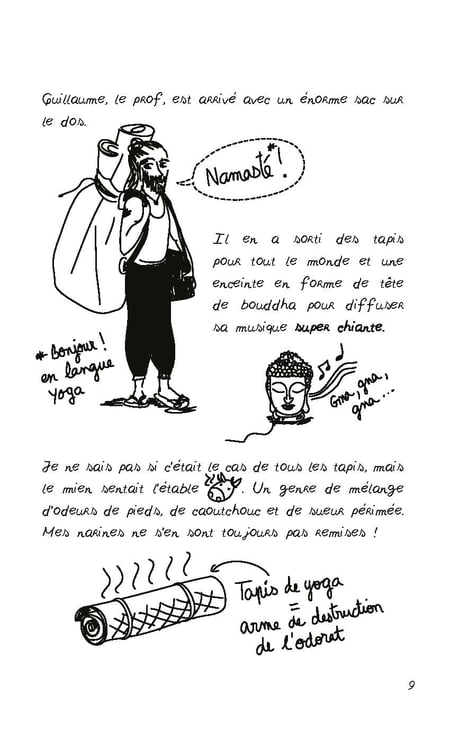 Guillaume, le prof, est arrivé avec un énorme sac sur
le dos.
Namasté*!
Il en a sorti des tapis
pour tout le monde et une
enceinte en forme de tête
de bouddha pour diffuser
sa musique super chiante.
* Bonjour!
en langue
yoga
Gna, gna,
gna...
Je ne sais pas si c'était le cas de tous les tapis, mais
le mien sentait l'étable . Un genre de mélange
d'odeurs de pieds, de caoutchouc et de sueur périmée.
Mes narines ne s'en sont toujours pas remises !
Tapis de yoga
=
arme de destruction
de l'odorat
9